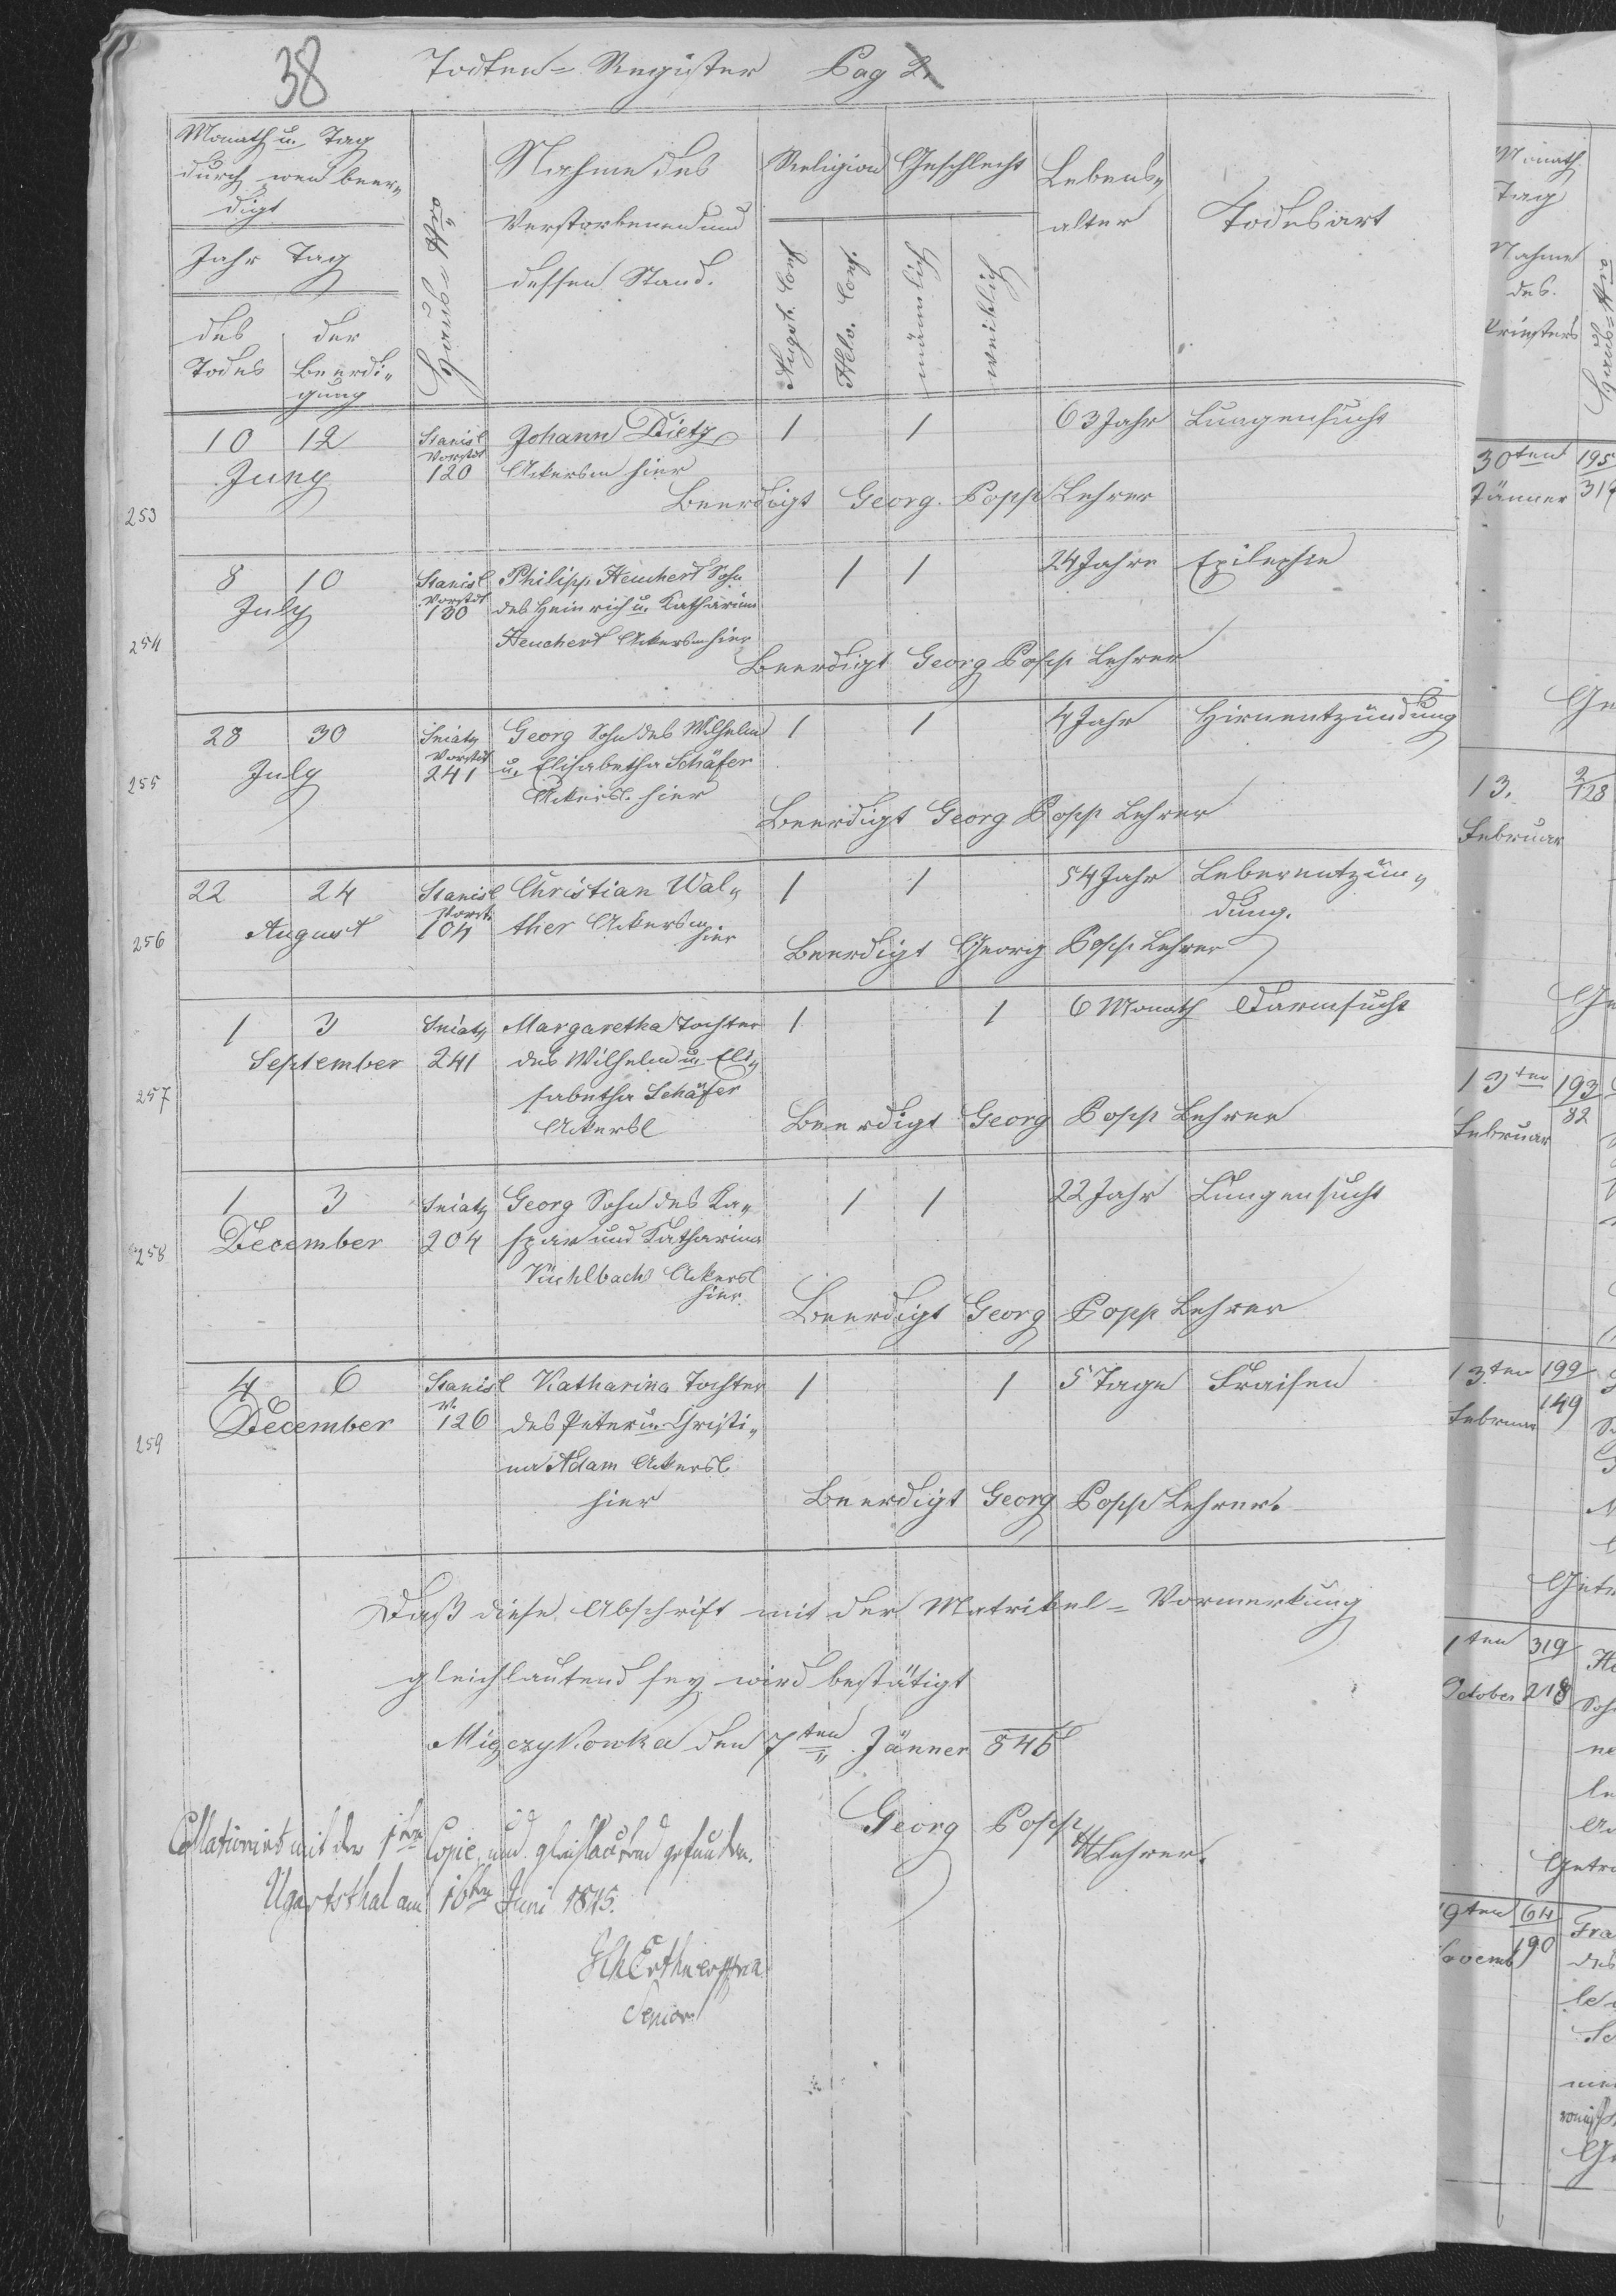 38 Todten=Register Pag 2.
Monath u. Tag
durch wen beer=
digt
Jahr Tag
des der
Todes Beerdi=
gung
Haus=Nro
Nahme des
Verstorbenen und
dessen Stand.
Religion
Augsb. Conf
Helv. Conf.
Geschlecht
männlich
weiblich
Lebens=
alter
Todesart
253
10 12
Juny
Stanisl
Vorstdt
120
Johann Dietz
Ackersm hier
1 1 63 Jahr Lungensucht
Beerdigt Georg Popp Lehrer
254
8 10
July
Stanisl
Vorstdt
130
Philipp Heuchert Sohn
des Heinrich u. Katharina
Heuchert Ackersm hier
1 1 24 Jahre Epilepsie
Beerdigt Georg Popp Lehrer
255
28 30
July
Sniaty
Vorstdt
241
Georg Sohn des Wilhelm
u. Elisabetha Schäfer
Ackersl. hier
1 1 4 Jahr Hirnentzündung
Beerdigt Georg Popp Lehrer
256
22 24
August
Stanisl
Vorst.
104
Christian Wal=
ther Ackersm
hier
1 1 54 Jahr Leberentzün=
dung.
Beerdigt Georg Popp Lehrer
257
1 3
September
Sniaty
241
Margaretha Tochter
des Wilhelm u. Eli=
sabetha Schäfer
Ackersl
1 1 6 Monath Darmsucht
Beerdigt Georg Popp Lehrer
258
1 3
December
Sniaty
204
Georg Sohn des Ka=
spar und Katharina
Küchlbach Ackersl
hier
1 1 22 Jahr Lungensucht
Beerdigt Georg Popp Lehrer
259
4 6
December
Stanisl
V.
126
Katharina Tochter
des Peter u. Christi=
na Adam Ackersl.
hier
1 1 5 Tage Fraisen
Beerdigt Georg Popp Lehrer.
Daß diese Abschrift mit der Matrikel=Vormerkung
gleichlautend sey wird bestätigt
den 7ten Jänner 845
Georg Popp
Lehrer.
Collationirt mit der 1ten Copie und gleichlautend gefunden.
Ugartsthal am 16ten Juni 1845.
Senior
Monath
Tag
Nahme
des
Priesters
Haus=Nro
30ten 195
Jänner
13. 2
128
Februar
13ten 193
82
Februar
13ten 199
149
Februar
1ten 319
October 218
19ten 64
190